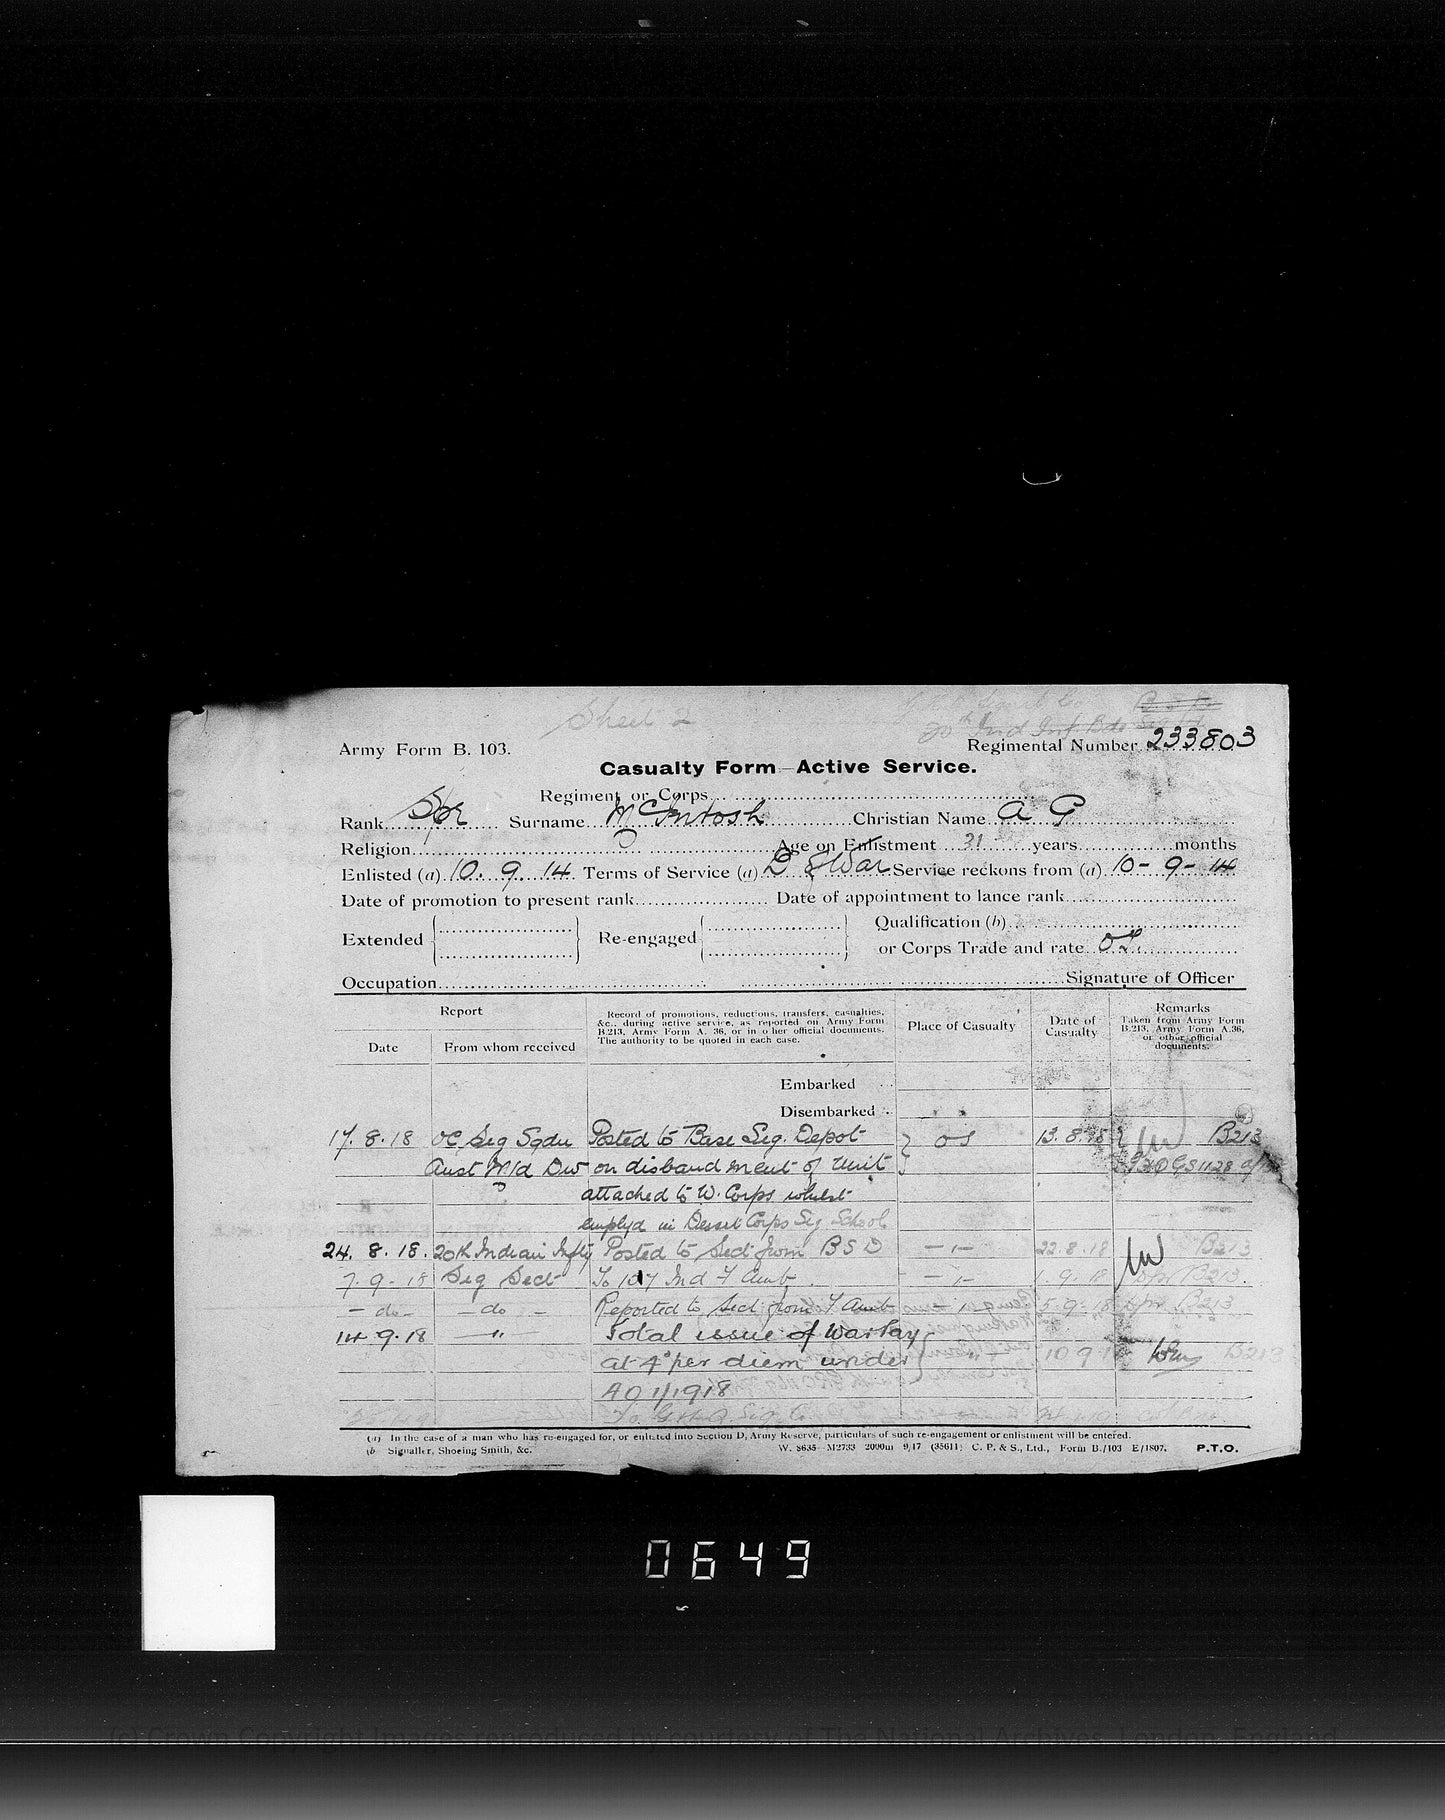 Sheet 2
20th Ind Inf. Bde Sig
Army Form B. 103.
Regimental Number 233803
Casualty Form—Active Service.
Regiment or Corps
Rank Spr Surname McIntosh Christian Name A G
Religion Age on Enlistment 31 years months
Enlisted (a) 10. 9. 14 Terms of Service (a) D of War Service reckons from (a) 10- 9- 14
Date of promotion to present rank Date of appointment to lance rank
Extended Re-engaged Qualification (b)
or Corps Trade and rate OT.
Occupation Signature of Officer
Report
Date From whom received
Record of promotions, reductions, transfers, casualties,
&c., during active service, as reported on Army Form
B.213, Army Form A. 36, or in other official documents.
The authority to be quoted in each case.
Place of Casualty
Date of
Casualty
Remarks
Taken from Army Form
B.213, Army Form A.36,
or other official
documents.
Embarked
Disembarked
17. 8. 18 OC Sig Sqdn Posted to Base Sig. Depot 13. 8. 18 B213
Aust M'd Div on disbandment of Unit
attached to W. Corps whilst
employd in Desert Corps Sig School
24. 8. 18. 20th Indian Infty Posted to Sect from B S D —"— 22. 8. 18 B213
7. 9 - 18 Sig Sect To 107 Ind F Amb. —"— 1. 9. 18 B213.
- do - - do - Reported to Sect from F Amb 5-9-18 B213
14. 9. 18 —"— Total issue of War Pay
at 4d per diem under 10 9 18 B213
AO 1/1918
To G.H.Q. Sig Co
(a) In the case of a man who has re-engaged for, or enlisted into Section D, Army Reserve, particulars of such re-engagement or enlistment will be entered.
(b Signaller, Shoeing Smith, &c. W. 8635—M2733 2000m 9/17 (35611) C. P. & S., Ltd., Form B./103 E/1807. P.T.O.
0649
(c) Crown Copyright Images reproduced by courtesy of The National Archives, London, England.